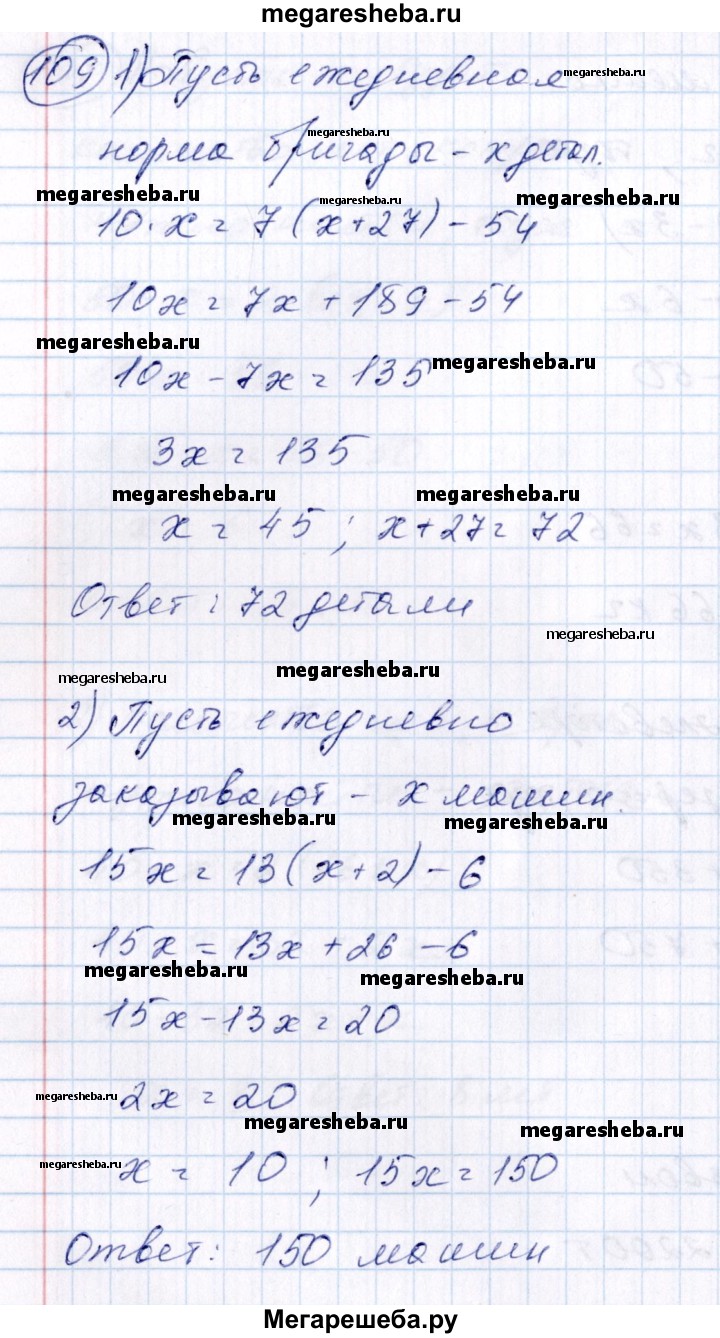 megaresheba.ru
109 1) Пусть ежедневная megaresheba.ru
megaresheba.ru
норма бригады - x детал.
megaresheba.ru megaresheba.ru megaresheba.ru
10·x = 7(x+27) - 54
10x = 7x + 189 - 54
megaresheba.ru
10x - 7x = 135 megaresheba.ru
3x = 135
megaresheba.ru megaresheba.ru
x = 45 ; x+27 = 72
Ответ: 72 детали
megaresheba.ru
megaresheba.ru megaresheba.ru
2) Пусть ежедневно
заказывают - x машин.
megaresheba.ru megaresheba.ru
15x = 13(x+2) - 6
15x = 13x + 26 - 6
megaresheba.ru megaresheba.ru
15x - 13x = 20
megaresheba.ru 2x = 20
megaresheba.ru megaresheba.ru
megaresheba.ru x = 10 ; 15x = 150
Ответ: 150 машин
Мегарешеба.ру